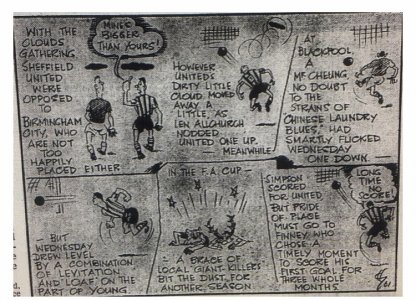 WITH THE
CLOUDS
GATHERING
SHEFFIELD
UNITED
WERE
OPPOSED
BIRMINGHAM
CITY, WHO
ARE NOT
TOO
HAPPILY
PLACED EITHER
MINE'S
BIGGER
THAN YOURS!
HOWEVER
UNITEDS
DIRTY LITTLE
CLOUD MOVED
AWAY A
LITTLE, AS
LEN ALLCHURCH
NODDED
UNITED ONE UP.
— MEANWHILE
AT
BLACKPOOL
A
MR CHEUNG,
NO DOUBT
TO THE
STRANS OF
"CHINESE LAUNDRY
BLUES," HAD
SMARTLY FLICKED
WEDNESDAY
ONE DOWN. —
— BUT
WEDNESDAY
DREW LEVEL
BY A COMBINATION
OF LEVITATION
AND 'LOAF' ON THE
PART OF YOUNG.
IN THE F.A. CUP —
— A BRACE OF
LOCAL 'GIANT-KILLERS'
BIT THE DUST, FOR
ANOTHER SEASON
SIMPSON
SCORED
FOR UNITED
BUT PRIDE
OF PLACE
MUST GO TO
FINNEY, WHO
CHOSE A
TIMELY MOMENT
TO SCORE HIS
FIRST GOAL FOR
THREE WHOLE
MONTHS.
LONG
TIME
NO
SCORE!